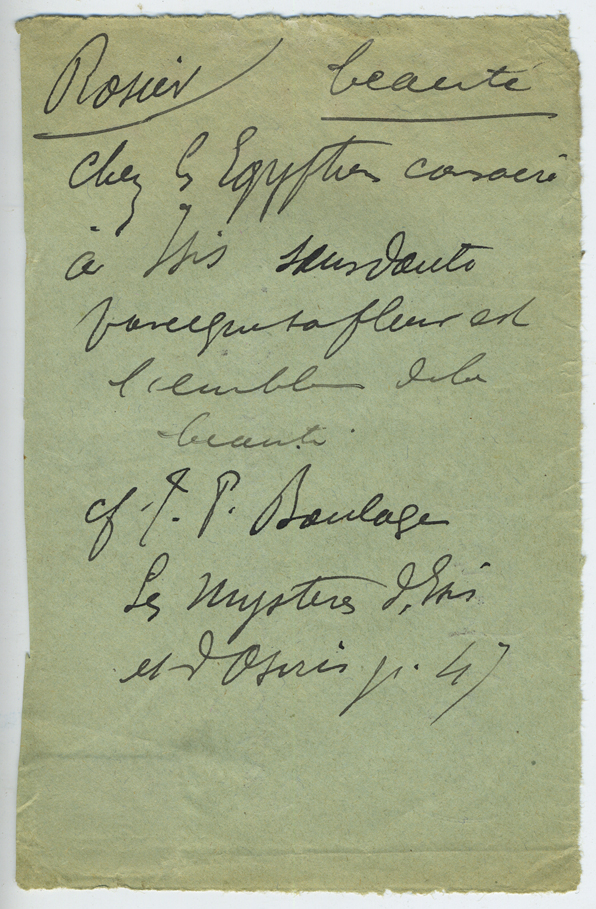 Rosier beauté
chez les Egyptiens consacré
à Isis sans doute
parce que sa fleur est
l'emblème de la
beauté.
cf. T. P. Boulage
Les Mystères d'Isis
et d'Osiris p. 47